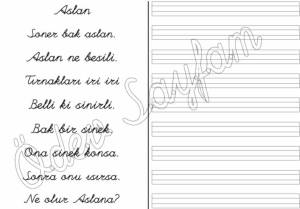 Aslan
Soner bak aslan.
Aslan ne besili.
Tırnakları iri iri
Belli ki sinirli.
Bak bir sinek,
Ona sinek konsa.
Sonra onu ısırsa.
Ne olur Aslana?
Ödev Sayfam